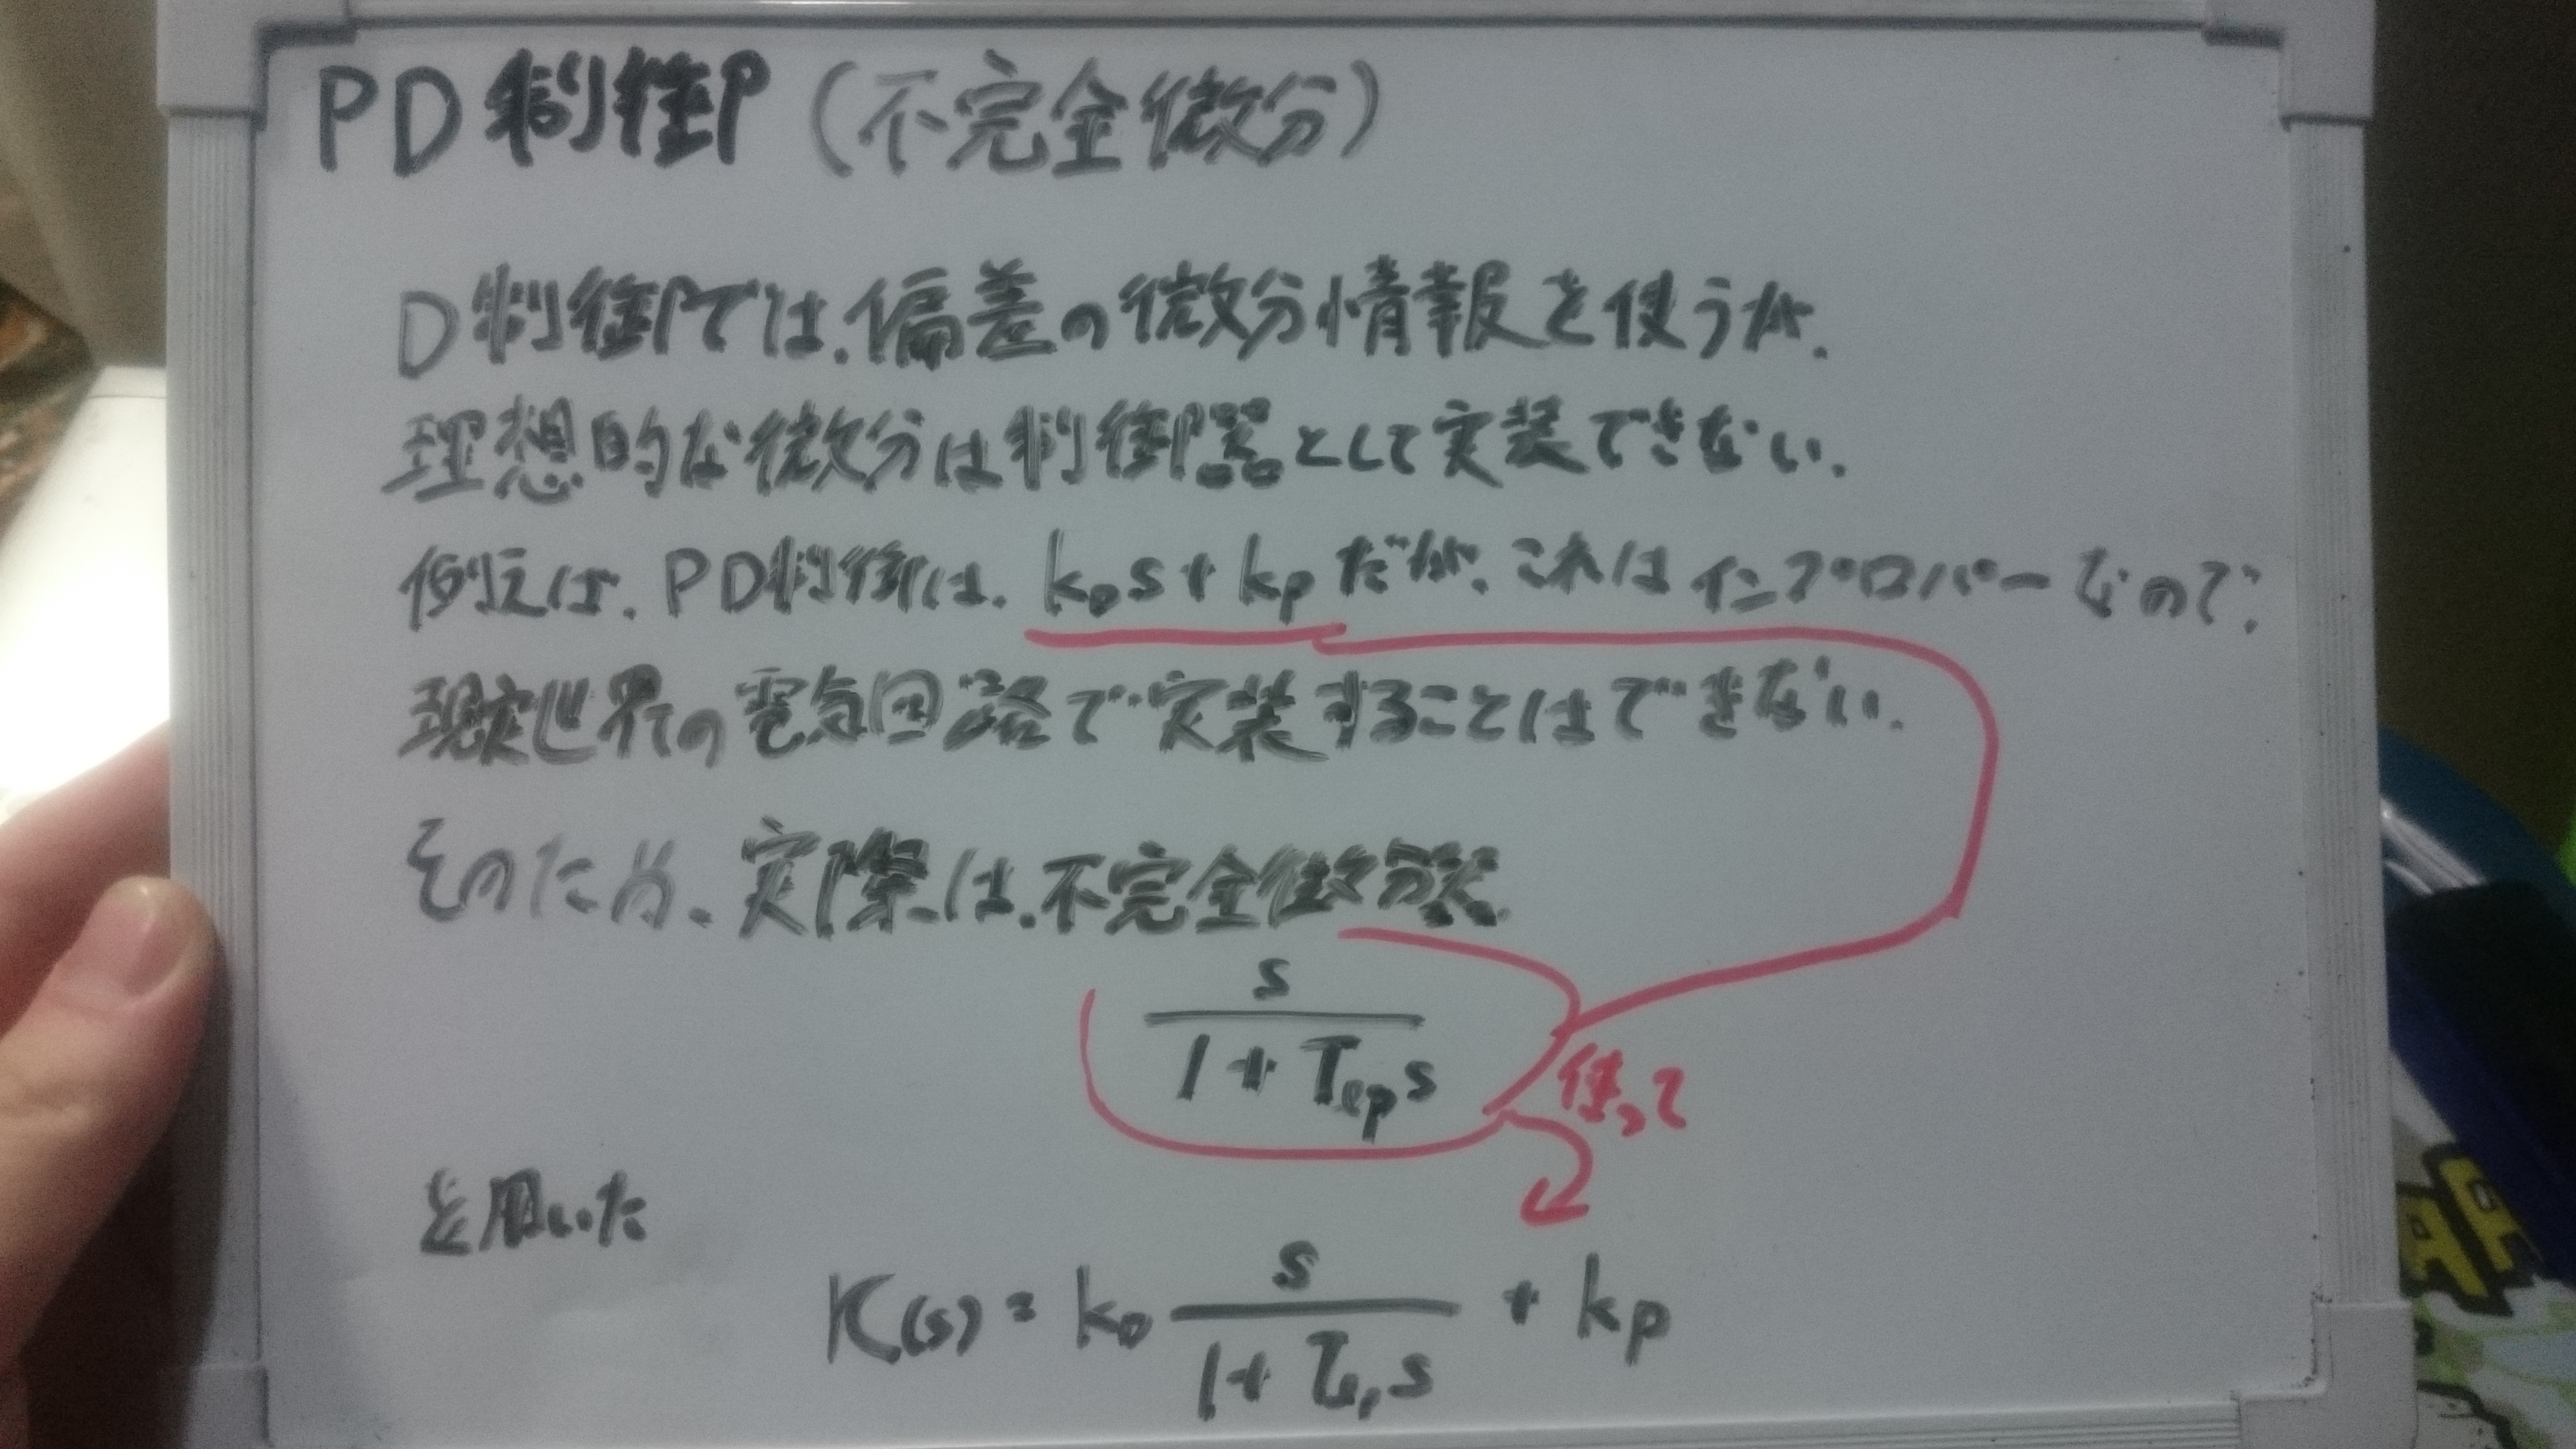 PD制御（不完全微分）
D制御では、偏差の微分情報を使うが、
理想的な微分は制御器として実装できない。
例えば、PD制御は、k_D s + k_P だが、これはインプロパーなので、
現実世界の電気回路で実装することはできない。
そのため、実際は、不完全微分
s
1 + T_{ep} s
使って
を用いた
K(s) = k_D s / (1 + s) + k_P